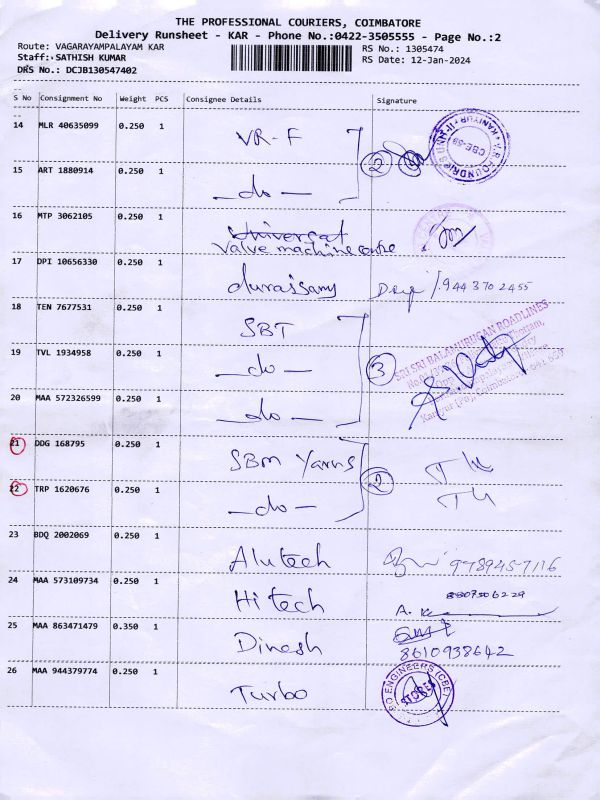 THE PROFESSIONAL COURIERS, COIMBATORE
Delivery Runsheet - KAR - Phone No.:0422-3505555 - Page No.:2
Route: VAGARAYAMPALAYAM KAR
RS No.: 1305474
Staff: SATHISH KUMAR
RS Date: 12-Jan-2024
DRS No.: DCJB130547402
S No Consignment No Weight PCS Consignee Details Signature
14 MLR 40635099 0.250 1 VR-F
2
KANIYUR
CBE-59
15 ART 1880914 0.250 1 -do-
16 MTP 3062105 0.250 1 Universal
Valve machine centre
17 DPI 10656330 0.250 1 duraisamy 944 370 2455
18 TEN 7677531 0.250 1 SBT
SRI SRI BALAMURUGAN ROADLINES
19 TVL 1934958 0.250 1 -do- 3
20 MAA 572326599 0.250 1 -do-
21 DDG 168795 0.250 1 SBM Yarns
2
22 TRP 1620676 0.250 1 -do-
23 BDQ 2002069 0.250 1 Alutech 9789457116
24 MAA 573109734 0.250 1 Hitech 8807506229
25 MAA 863471479 0.350 1 Dinesh
8610938642
26 MAA 944379774 0.250 1 Turbo
ENGINEERS (CBE)
STORES